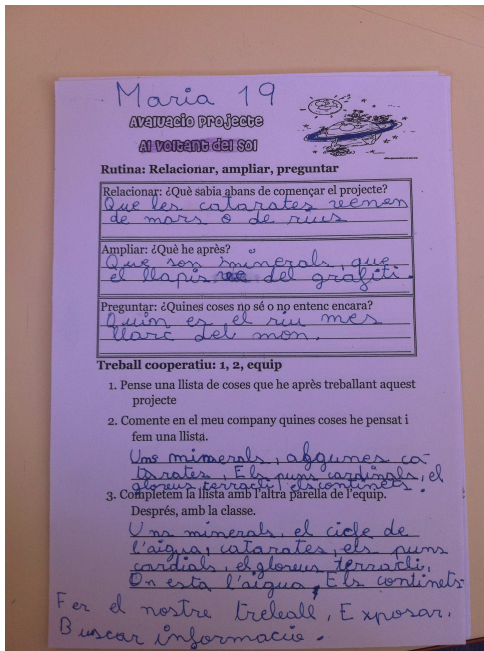 Maria 19
Avaluacio projecte
Al voltant del Sol
Rutina: Relacionar, ampliar, preguntar
Relacionar: ¿Què sabia abans de començar el projecte?
Que les catarates venen
de mars o de rius
Ampliar: ¿Què he après?
Que son minerals, que
el llapis ve del grafiti.
Preguntar: ¿Quines coses no sé o no entenc encara?
Quin es el riu mes
llarc del mon.
Treball cooperatiu: 1, 2, equip
1. Pense una llista de coses que he après treballant aquest
projecte
2. Comente en el meu company quines coses he pensat i
fem una llista.
Uns minerals, algunes ca-
tarates, Els puns cardinals, el
gloreus terracli, els continets.
3. Completem la llista amb l'altra parella de l'equip.
Després, amb la classe.
Uns minerals, el cicle de
l'aigua, catarates, els puns
cardials, el gloreus terracli,
On esta l'aigua, Els continets
Fer el nostre treball, Exposar.
Buscar informacio.